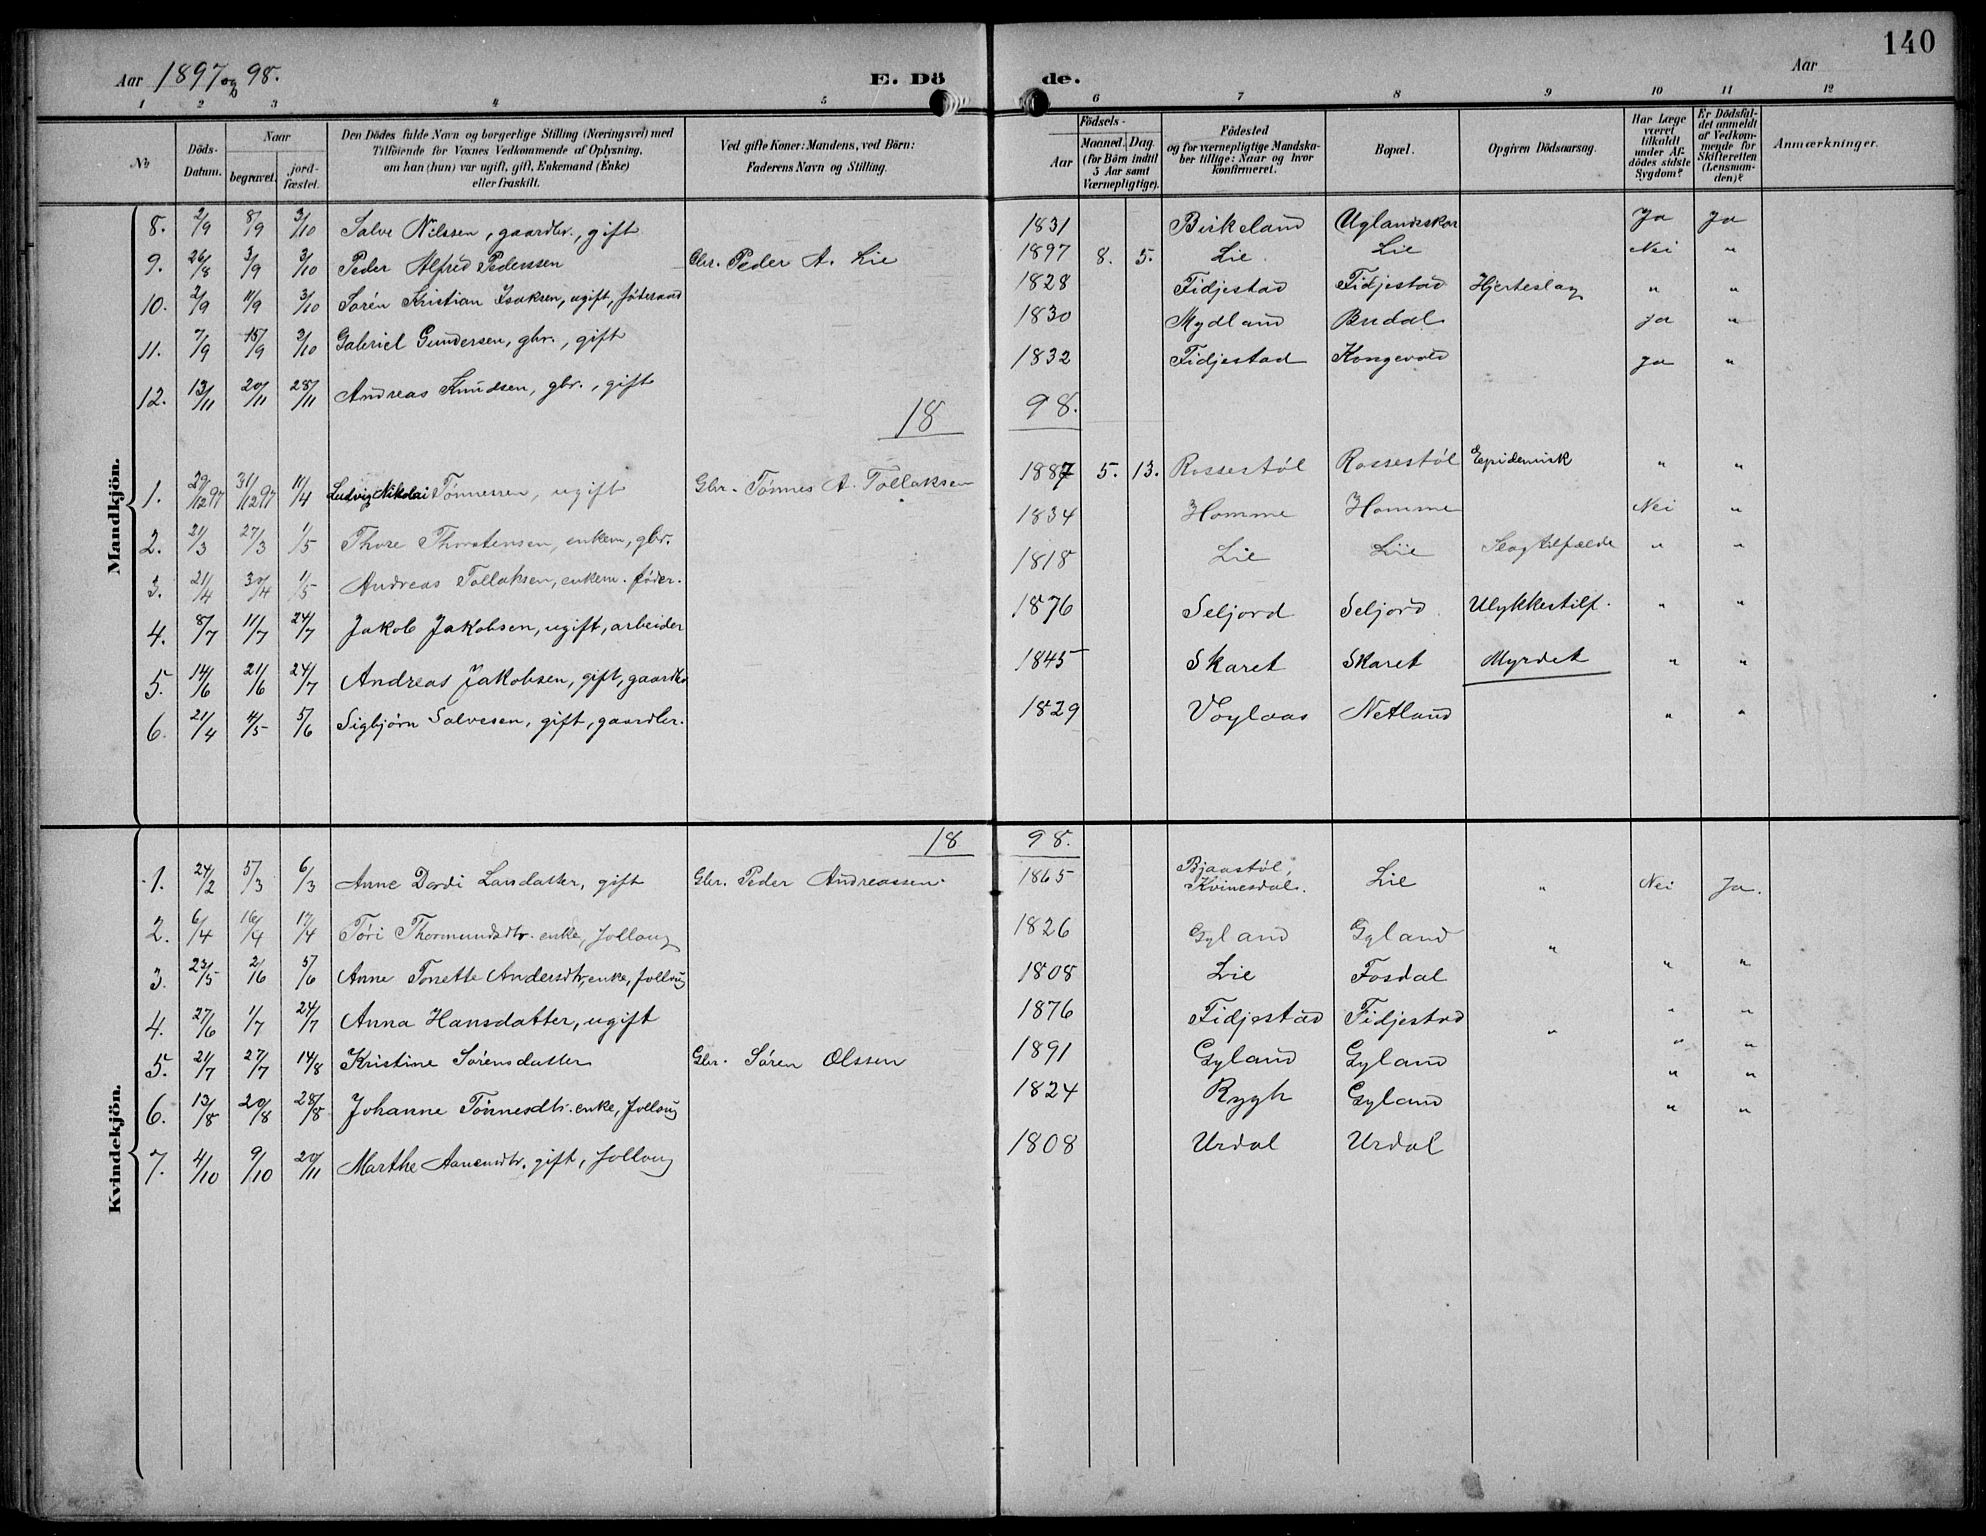 140
Aar 1897 og 98. E. Döde. Aar
1 2 3 4 5 6 7 8 9 10 11 12
No
Döds-Datum.
Naar
begravet.
jordfæstet.
Den Dödes fulde Navn og borgerlige Stilling (Næringsvei) med
Tilföiende for Voxnes Vedkommende af Oplysning,
om han (hun) var ugift, gift, Enkemand (Enke)
eller fraskilt.
Ved gifte Koner: Mandens, ved Börn:
Faderens Navn og Stilling.
Födsels-
Aar
Maaned. Dag.
(for Börn indtil
3 Aar samt
Værnepligtige).
Födested
og for værnepligtige Mandskaber tillige: Naar og hvor
konfirmeret.
Bopæl.
Opgiven Dödsaarsag.
Har Læge
været
tilkaldt
under Afdödes sidste
Sygdom?
Er Dödsfaldet anmeldt
af Vedkommende for
Skifteretten
(Lensmanden)?
Anmærkninger.
Mandkjön.
8. 2/9 8/9 3/10 Salve Nilssen, gaardbr., gift 1831 Birkeland Uglandeskor Ja Ja
9. 26/8 3/9 3/10 Peder Alfred Pederssen Gbr. Peder A. Lie 1897 8. 5. Lie. Lie Nei "
10. 2/9 11/9 3/10 Sørén Kristian Isaksen, ugift, föderaad 1828 Fidjestad Fidjestad Hjerteslag " "
11. 7/9 15/9 3/10 Gabriel Gundersen, gbr., gift 1830 Mydland Budal Ja "
12. 13/11 20/11 28/11 Andreas Knudsen, gbr., gift 1832 Fidjestad Kongevold Ja "
18 98.
1. 29/12 97 31/12 97 11/4 Ludvig Nikolai Tønnessen, ugift Gbr. Tønnes A. Tollaksen 1887 5. 13. Rossestøl Rossestøl Epidemisk " "
2. 21/3 27/3 1/5 Thore Thorstensen, enkem, gbr. 1834 Homme Homme Nei "
3. 21/4 30/4 1/5 Andreas Tollaksen, enkem. föder. 1818 Lie Lie Slagtilfælde " "
4. 8/7 11/7 24/7 Jakob Jakobsen, ugift, arbeider 1876 Seljord Seljord. Ulykkestilf. " "
5. 14/6 21/6 24/7 Andreas Jakobsen, gift, gaardbr 1845 Skaret Skaret Myrdet " "
6. 21/4 4/5 5/6 Sigbjørn Salvesen, gift, gaardbr. 1829 Voylaas Netland " "
Kvindekjön.
18 98.
1. 24/2 5/3 6/3 Anne Dordi Larsdatter, gift Gbr. Peder Andreassen. 1865 Bjaastøl, Kvinesdal. Lie " Nei Ja.
2. 6/4 16/4 17/4 Tøri Thormundsdtr. enke, follaug 1826 Gyland Gyland "
3. 23/5 2/6 5/6 Anne Tonette Andersdtr, enke, follaug 1808 Lie Fosdal " "
4. 27/6 1/7 24/7 Anna Hansdatter, ugift 1876 Fidjestad Fidjestad " " "
5. 21/7 27/7 14/8 Kristine Sørensdatter Gbr. Søren Olssen 1891 Gyland Gyland " "
6. 13/8 20/8 28/8 Johanne Tønnesdtr. enke, follaug 1824 Rygh Gyland " "
7. 4/10 9/10 20/11 Marthe Aanensdtr. gift, follaug 1808 Urdal Urdal " "